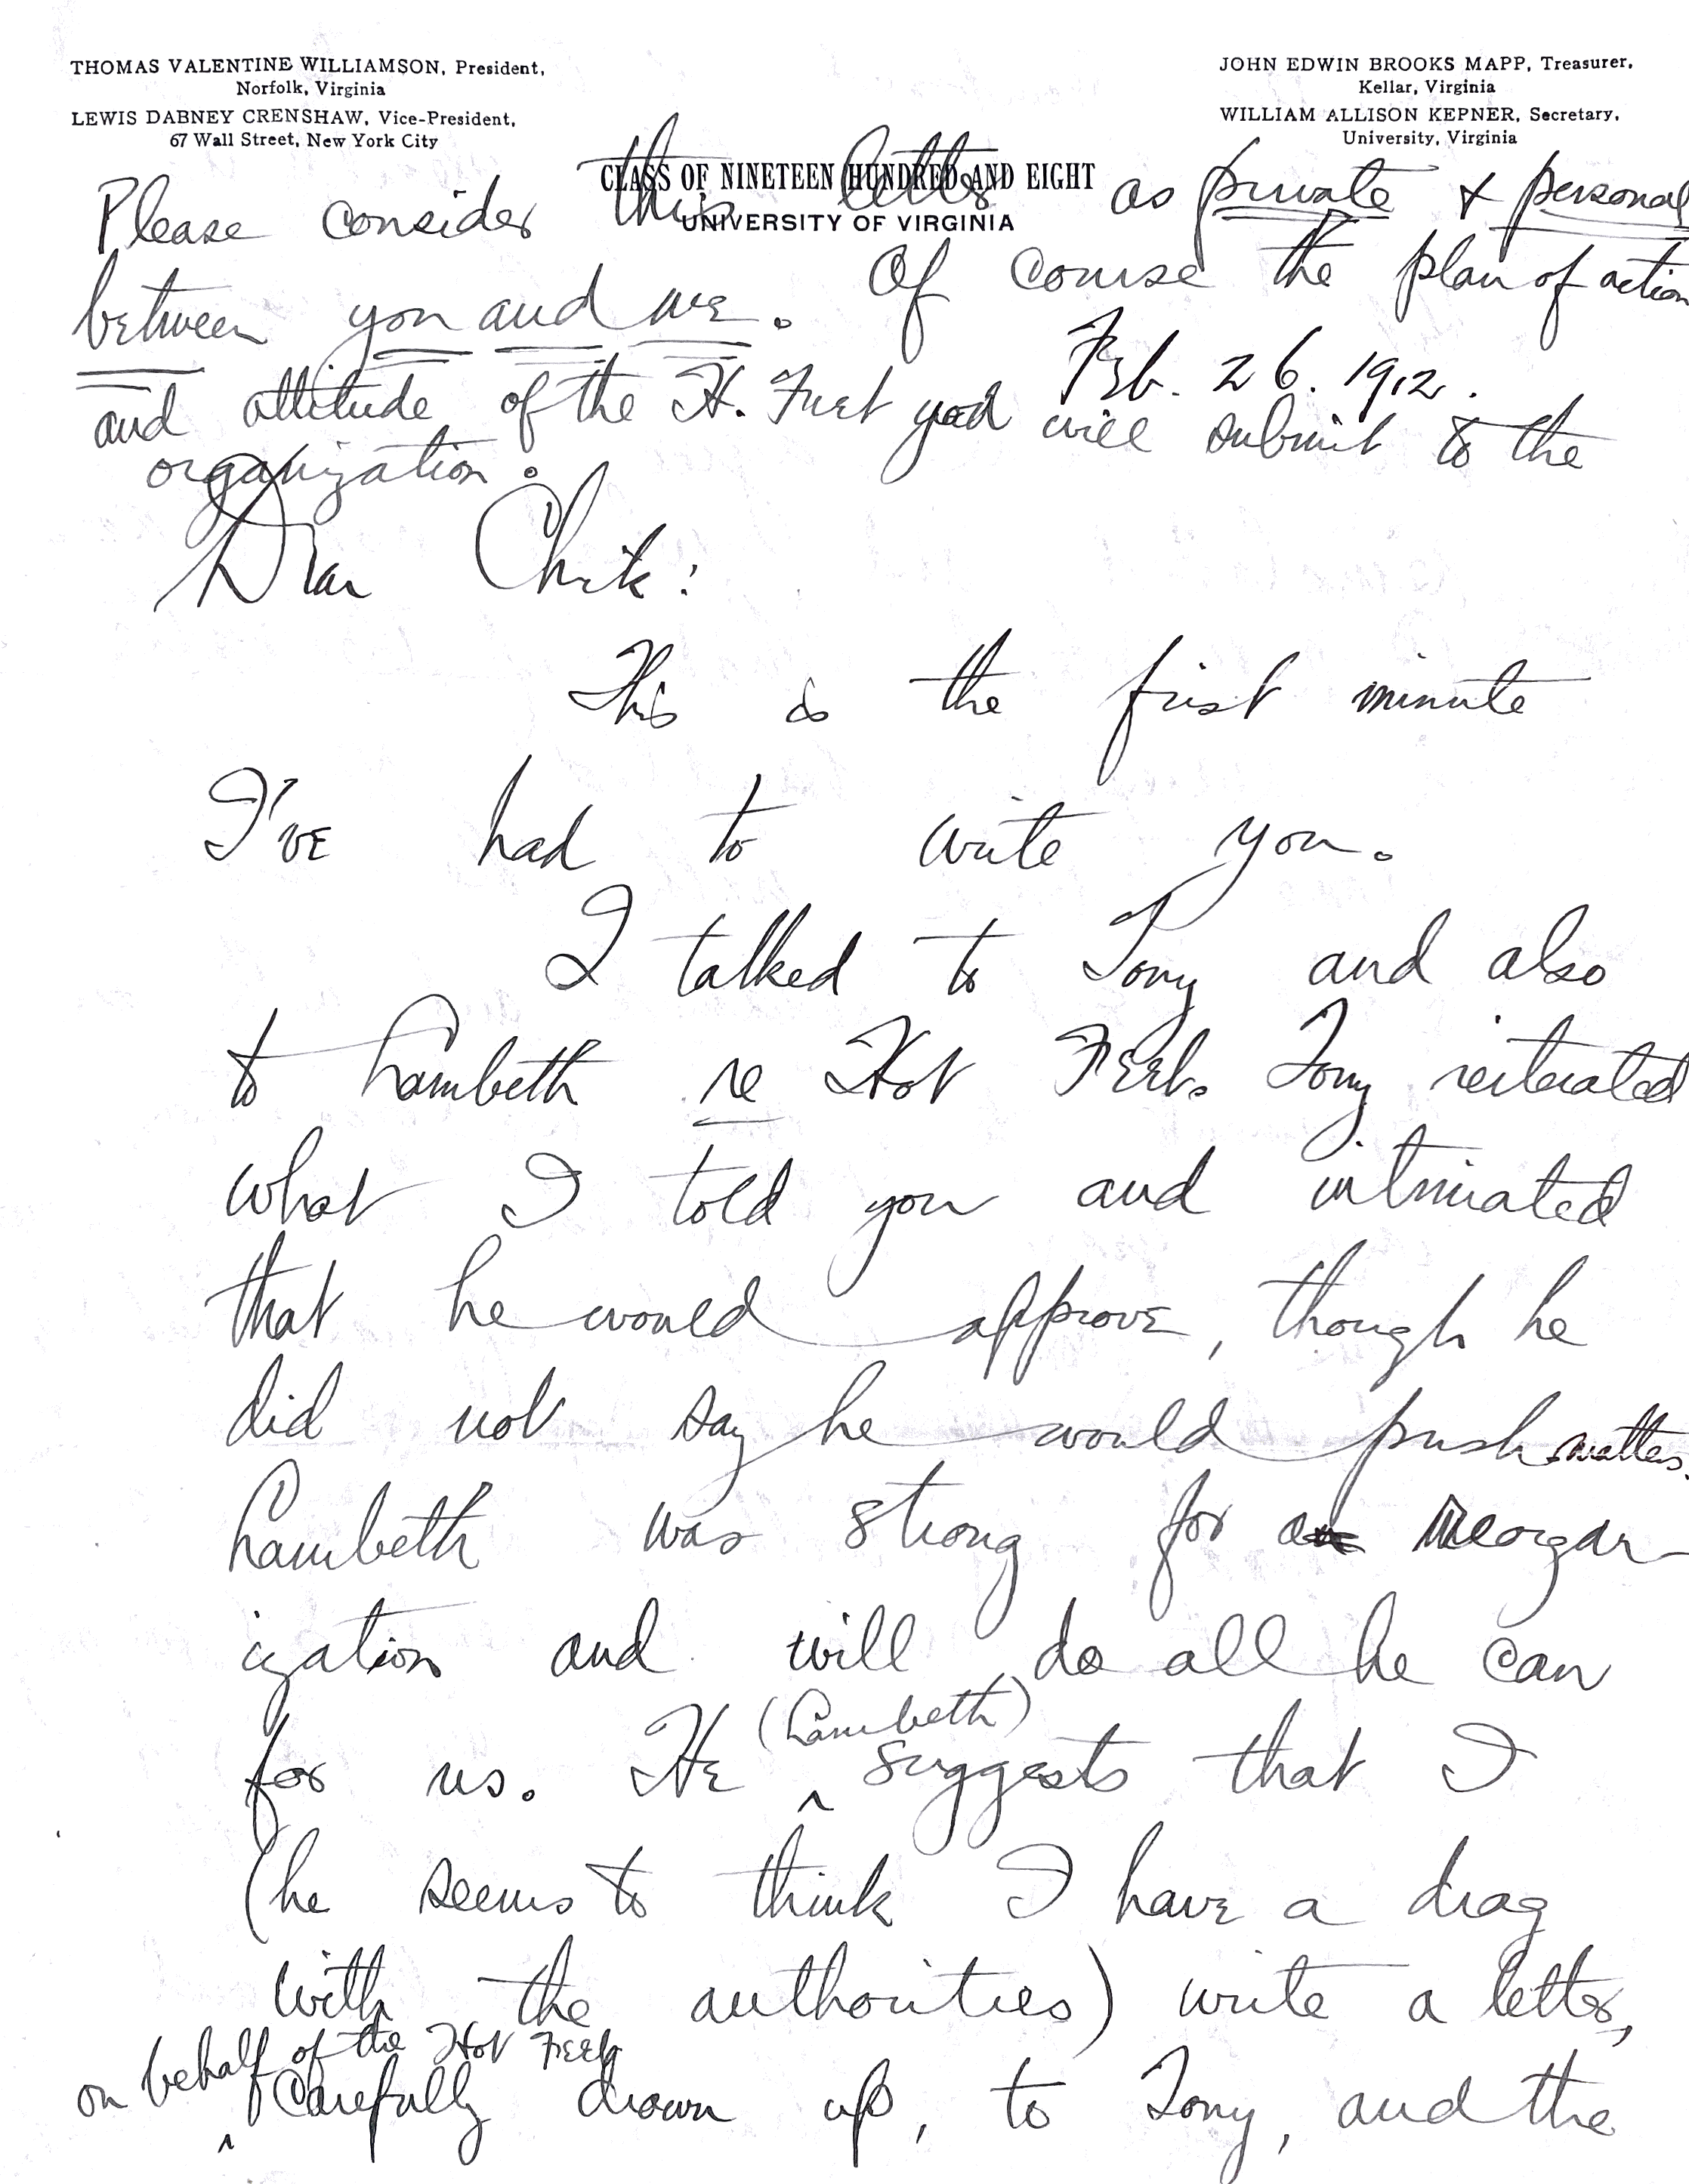 THOMAS VALENTINE WILLIAMSON, President,
Norfolk, Virginia
LEWIS DABNEY CRENSHAW, Vice-President,
67 Wall Street, New York City
JOHN EDWIN BROOKS MAPP, Treasurer,
Kellar, Virginia
WILLIAM ALLISON KEPNER, Secretary,
University, Virginia
CLASS OF NINETEEN HUNDRED AND EIGHT
UNIVERSITY OF VIRGINIA
Please consider this letter as private & personal
between you and me. Of course the plan of action
Feb. 26. 1912.
and attitude of the H. Feet you will submit to the
organization.
Dear Chik:
This is the first minute
I've had to write you.
I talked to Tony and also
to Lambeth re Hot Feet. Tony reiterated
what I told you and intimated
that he would approve, though he
did not say he would push matters.
Lambeth was strong for a Reorgan-
ization and will do all he can
for us. He (Lambeth) suggests that I
(he seems to think I have a drag
with the authorities) write a letter,
on behalf of the Hot Feet
Carefully drawn up, to Tony, and the